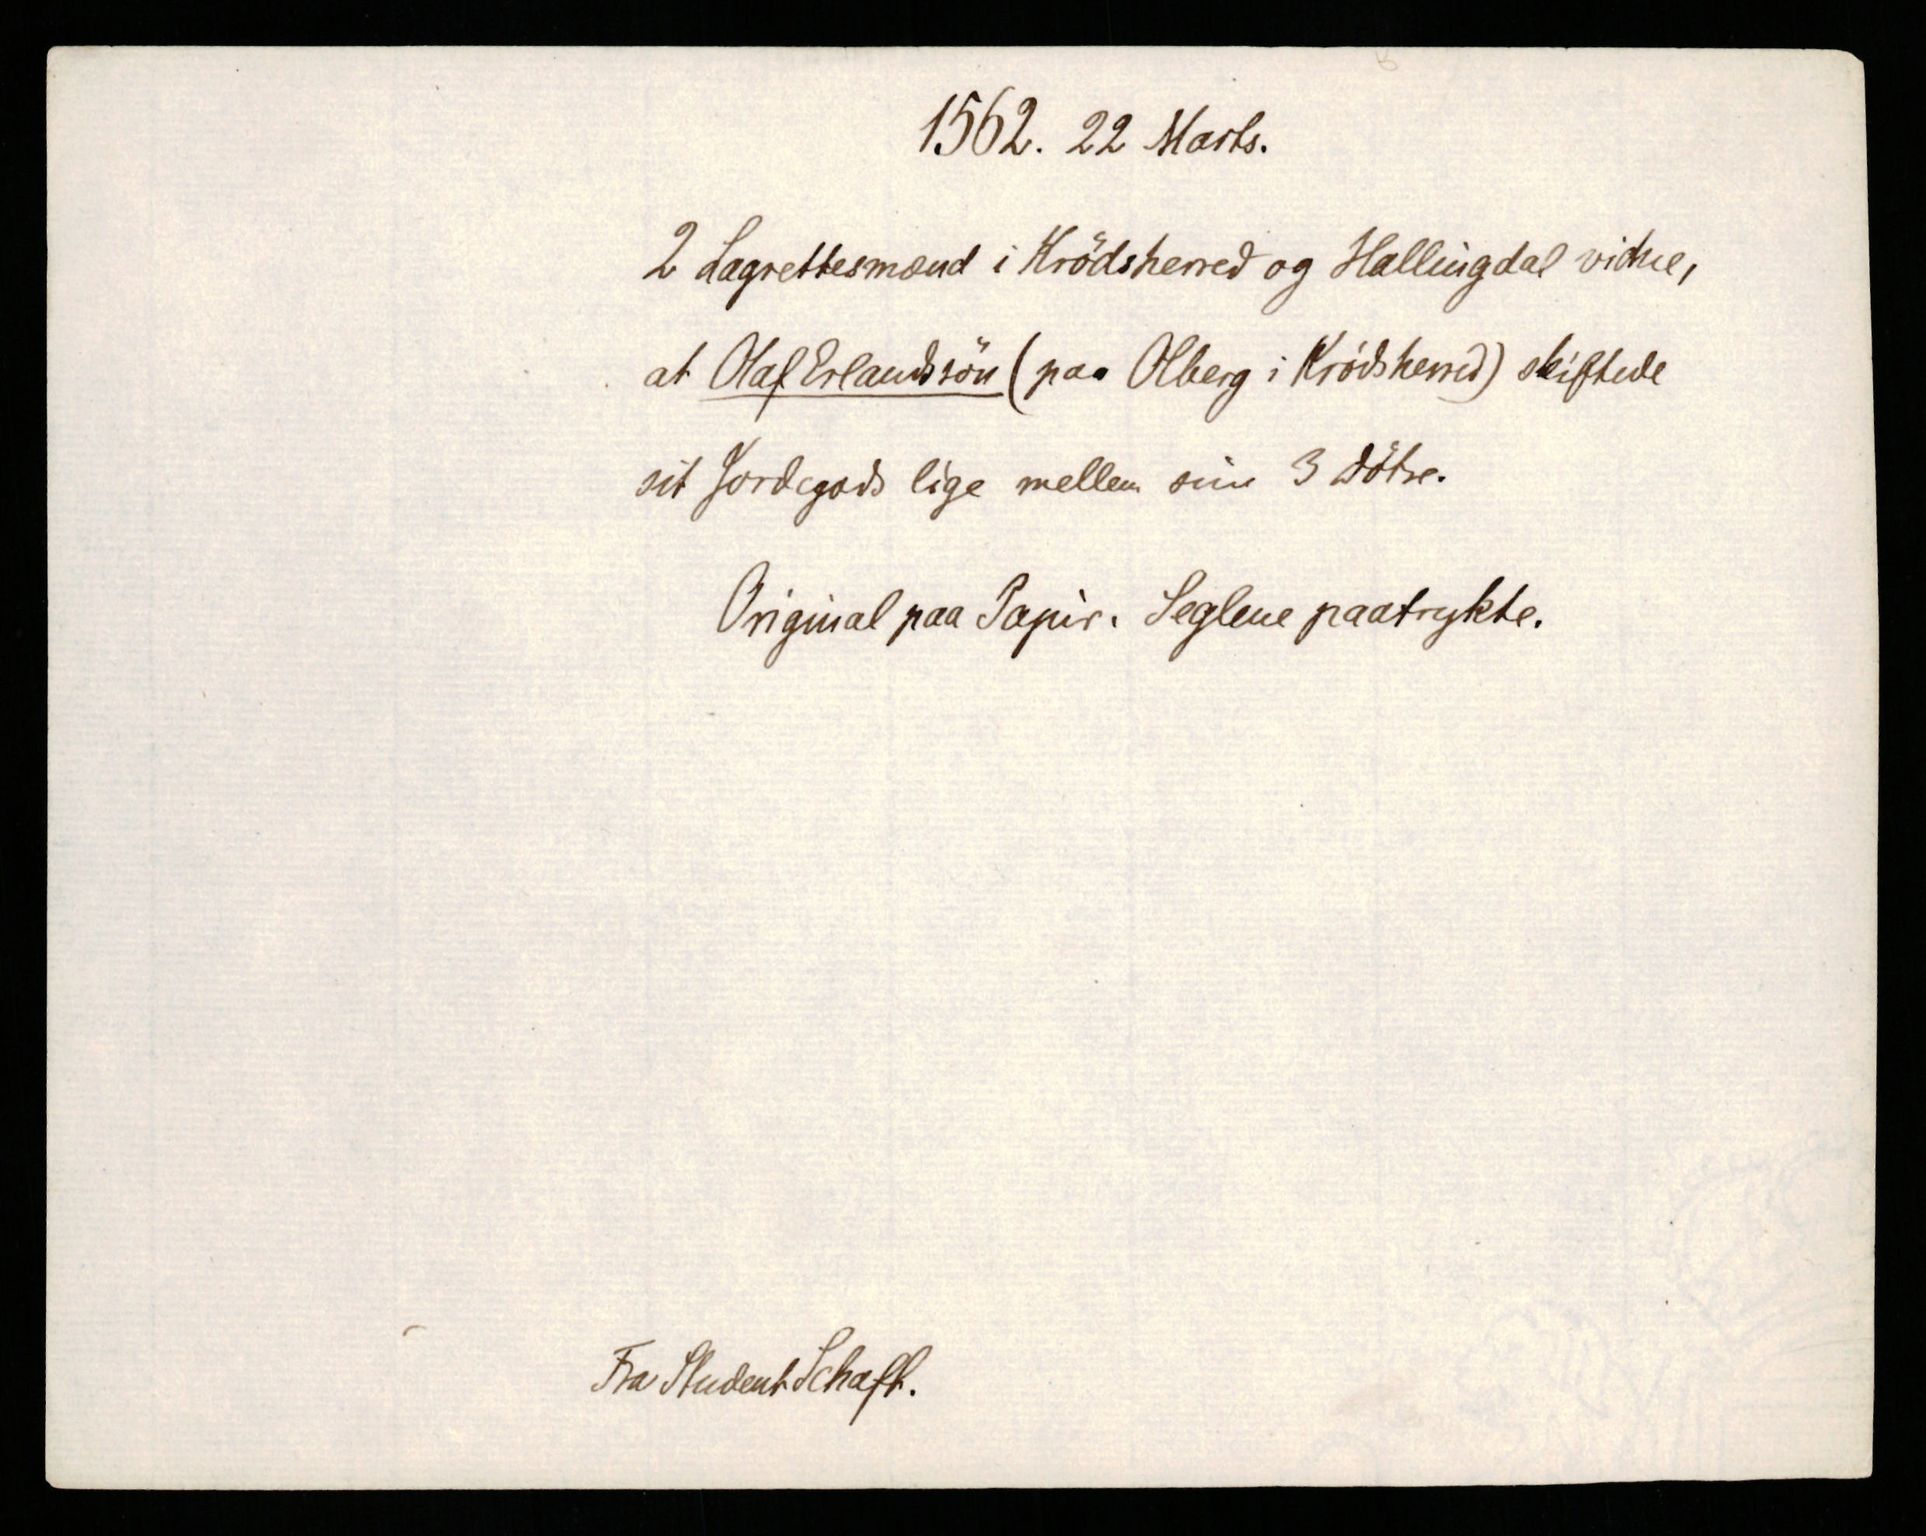 1562. 22 Marts.
2 Lagrettesmænd i Krödsherred og Hallingdal vidne,
at Olaf Erlandssön (paa Olberg i Krödsherred) skiftede
sit Jordegods lige mellem sine 3 Dötre.
Original paa Papir. Seglene paatrykte.
Fra Student Schaft.